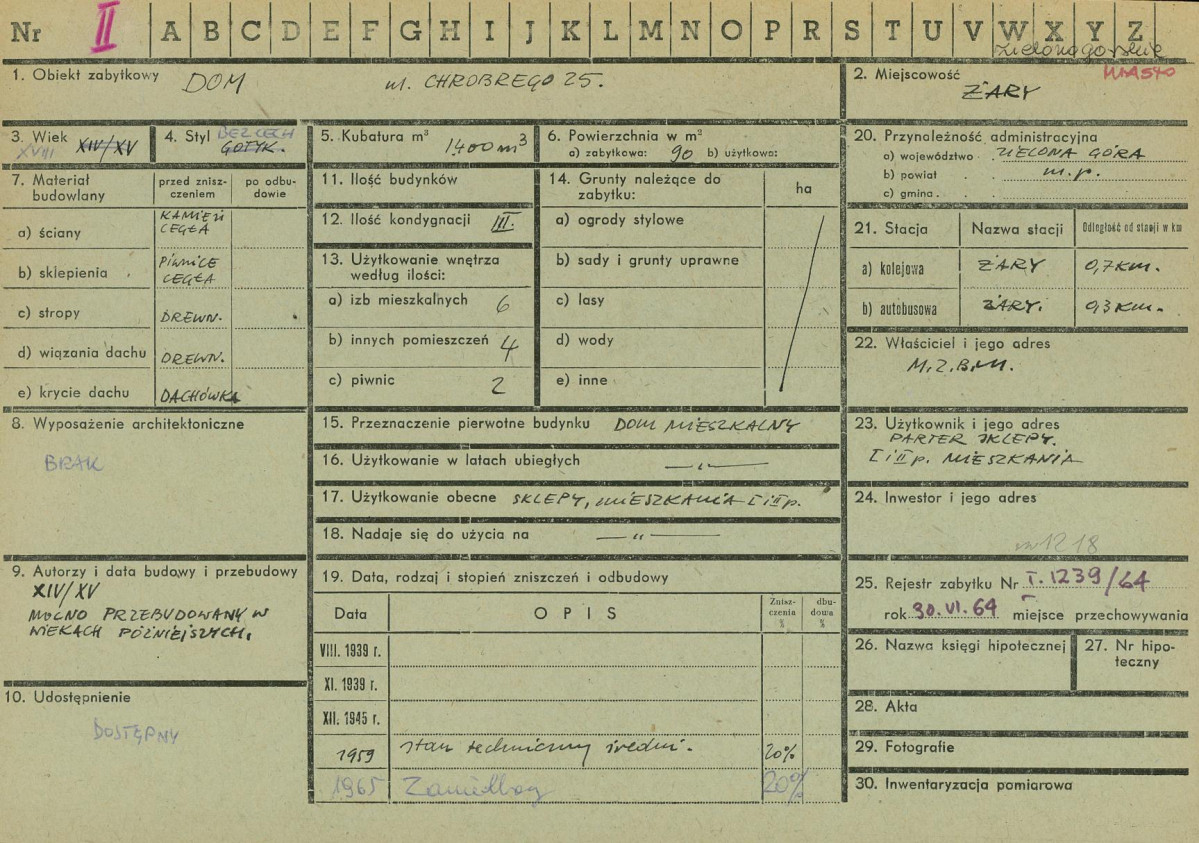 Nr II A B C D E F G H I J K L M N O P R S T U V W X Y Z
zielonogórskie
1. Obiekt zabytkowy DOM ul. CHROBREGO 25.
2. Miejscowość MIASTO
ŻARY
3. Wiek XIV/XV
XVIII
4. Styl BEZ CECH
GOTYK.
5. Kubatura m³ 1400 m³
6. Powierzchnia w m²
a) zabytkowa: 90 b) użytkowa:
7. Materiał budowlany
przed zniszczeniem
po odbudowie
a) ściany KAMIEŃ CEGŁA
b) sklepienia PIWNICE CEGŁA
c) stropy DREWN.
d) wiązania dachu DREWN.
e) krycie dachu DACHÓWKA
8. Wyposażenie architektoniczne
BRAK
9. Autorzy i data budowy i przebudowy
XIV/XV
MOCNO PRZEBUDOWANY W
WIEKACH PÓŹNIEJSZYCH.
10. Udostępnienie
DOSTĘPNY
11. Ilość budynków
12. Ilość kondygnacji III.
13. Użytkowanie wnętrza
według ilości:
a) izb mieszkalnych 6
b) innych pomieszczeń 4
c) piwnic 2
14. Grunty należące do
zabytku:
ha
a) ogrody stylowe
b) sady i grunty uprawne
c) lasy
d) wody
e) inne
15. Przeznaczenie pierwotne budynku DOM MIESZKALNY
16. Użytkowanie w latach ubiegłych —„—
17. Użytkowanie obecne SKLEPY, MIESZKANIA I i II p.
18. Nadaje się do użycia na —„—
19. Data, rodzaj i stopień zniszczeń i odbudowy
Data OPIS Zniszczenia % dbudowa %
VIII. 1939 r.
XI. 1939 r.
XII. 1945 r.
1959 stan techniczny średni. 20%
1965 20%
20. Przynależność administracyjna
a) województwo ZIELONA GÓRA
b) powiat m.p.
c) gmina
21. Stacja Nazwa stacji Odległość od stacji w km
a) kolejowa ŻARY 0,7 KM.
b) autobusowa ŻARY. 0,3 KM.
22. Właściciel i jego adres
M.Z.B.M.
23. Użytkownik i jego adres
PARTER SKLEPY.
I i II p. MIESZKANIA
24. Inwestor i jego adres
nr 1218
25. Rejestr zabytku Nr I.1239/64
rok 30.VI.64 miejsce przechowywania
26. Nazwa księgi hipotecznej
27. Nr hipoteczny
28. Akta
29. Fotografie
30. Inwentaryzacja pomiarowa